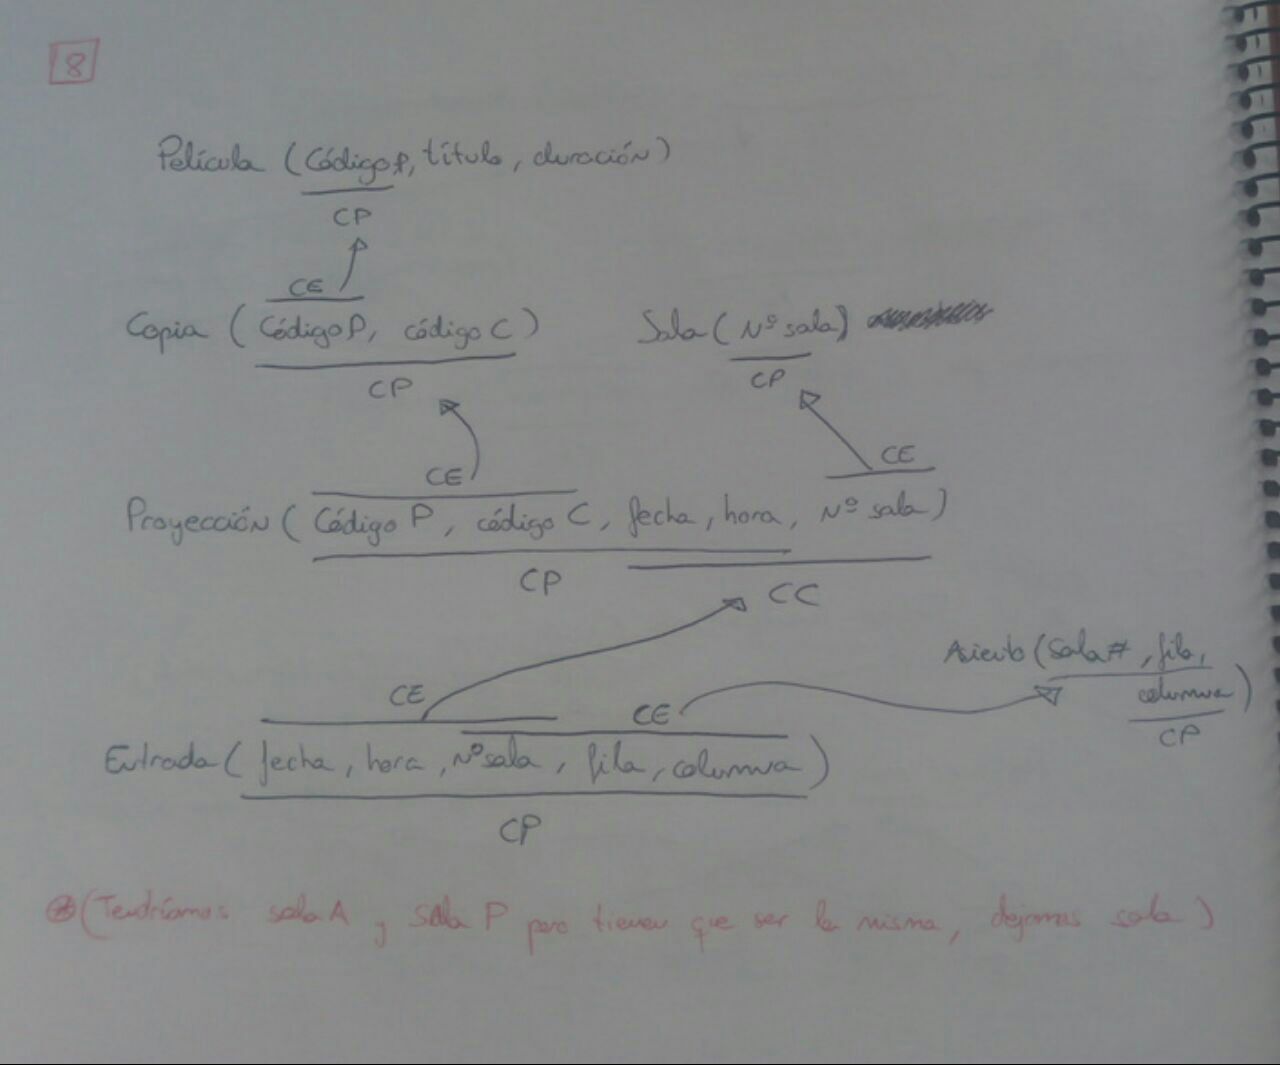 8
Película (Códigop, título, duración)
CP
CE
Copia (CódigoP, código C)
CP
Sala (Nº sala)
CP
CE
CE
Proyección (Código P, código C, fecha, hora, Nº sala)
CP
CC
Asiento (Sala#, fila,
columna)
CP
CE
CE
Entrada (fecha, hora, Nº sala, fila, columna)
CP
(Tendríamos sala A y Sala P pero tienen que ser la misma, dejamos sala)